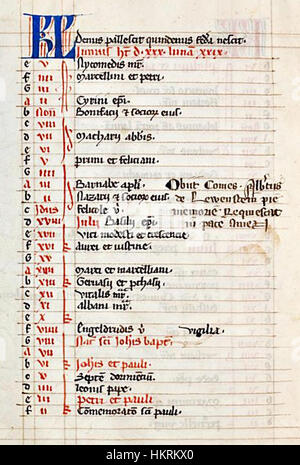 KL Denus pallescit quindenus federa nescit.
Junius ht d. xxx. luna xxix.
e v Nycomedis mr.
f iiii Marcellini et petri
g iii
a ii Cyrini epi.
b Non Bonifacij & socior eius
c viii
d vii Macharij abbis.
e vi
f v Primi et feliciani.
g iiii
a iii Barnabe apli. Obiit Comes Albtus
b ii Nazarij & socior eius de Lewenstein pie
c Idus Felicule v. memorie Requiescat
d xviii Julij Basilij epi. in pace Amen
e xvii Viti modesti et crescencie
f xvi Aurei et iustine.
g xv
a xiiii Marci et marcelliani.
b xiii Geruasij et pthasij.
c xii Vitalis mr.
d xi Albani mr.
e x
f viii Engeldrudis v. vigilia
g Nat sci Johis bapt.
a vii
b vi Johis et pauli.
c v Septe dormientiu.
d iiii Leonis pape.
e iii Petri et pauli
f ii Comemoratio sci pauli.
alamy
HKRKX0
www.alamy.com